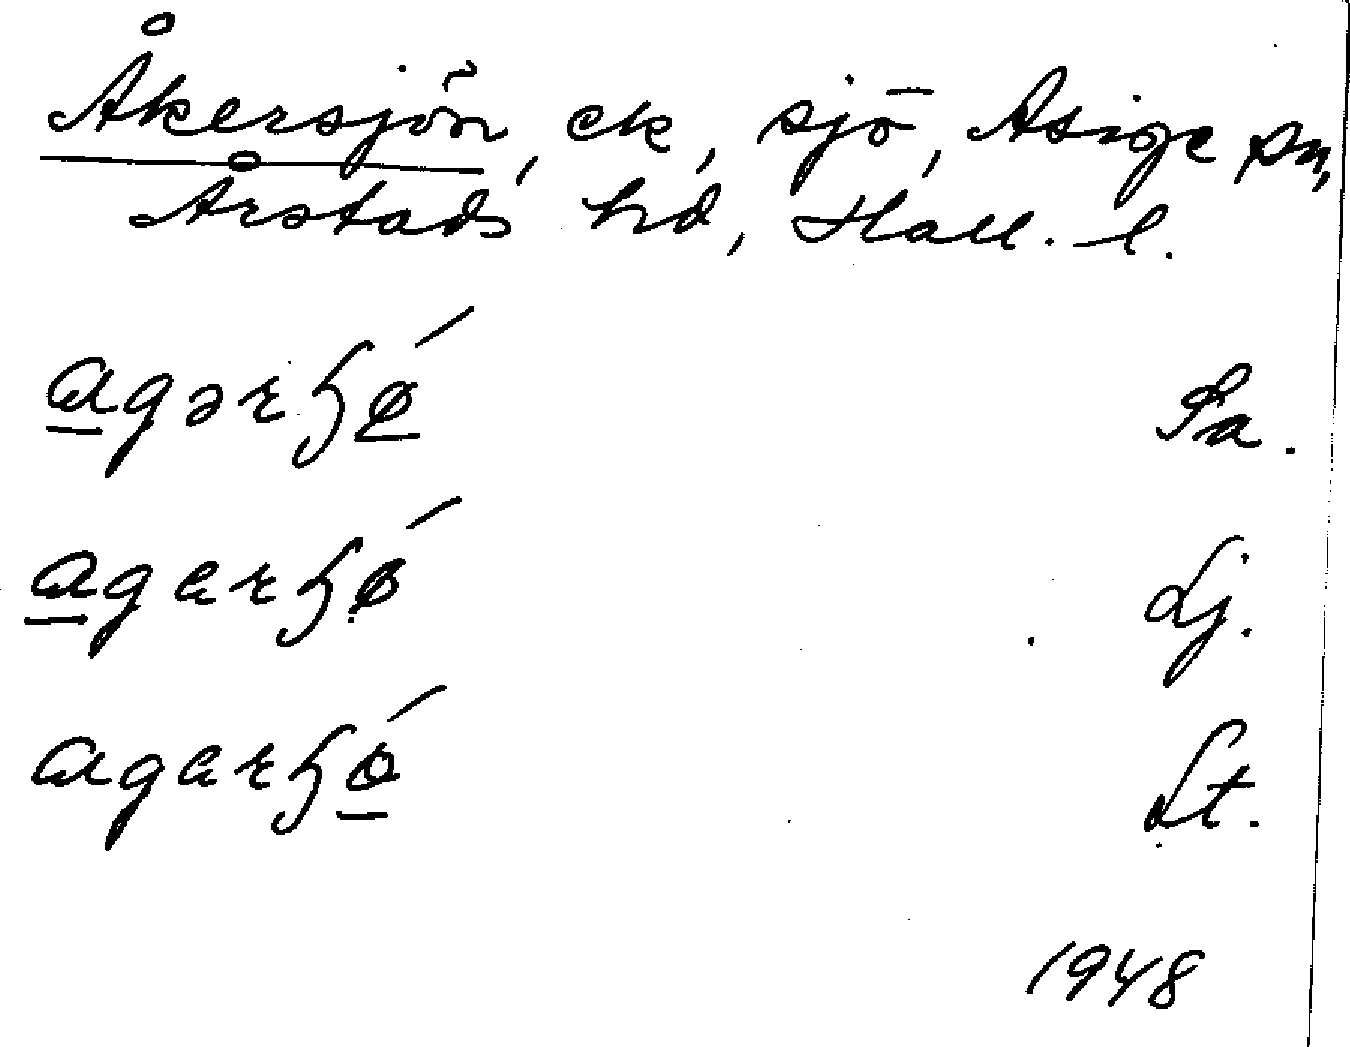 Åkersjön, ek, sjö, Asige sn,
Årstads hd, Hall. l.
agərɧǿ Sa.
agarɧǿ Lj.
agarɧó Lt.
1948